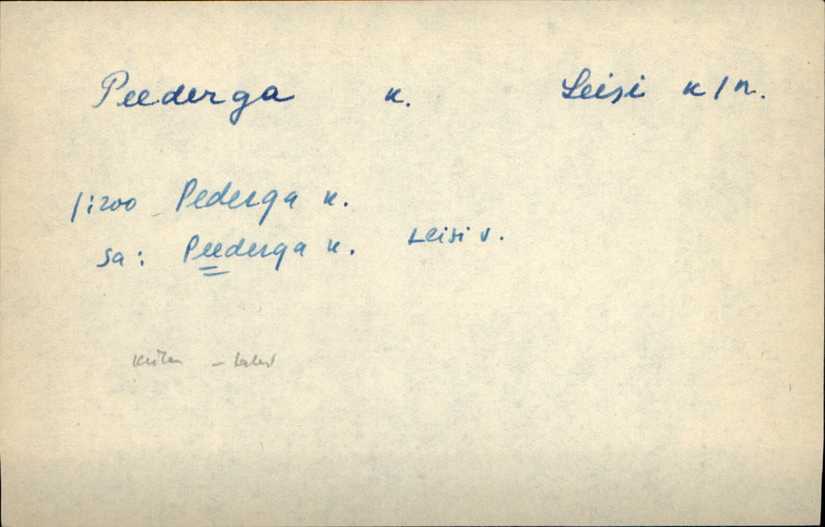 Peederga k. Leisi k/n.
1:200 Pederga k.
sa: Peederga k. Leisi v.